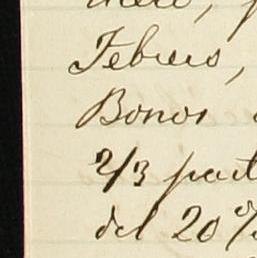 Febrero,
Bonos
2/3 part
del 20%